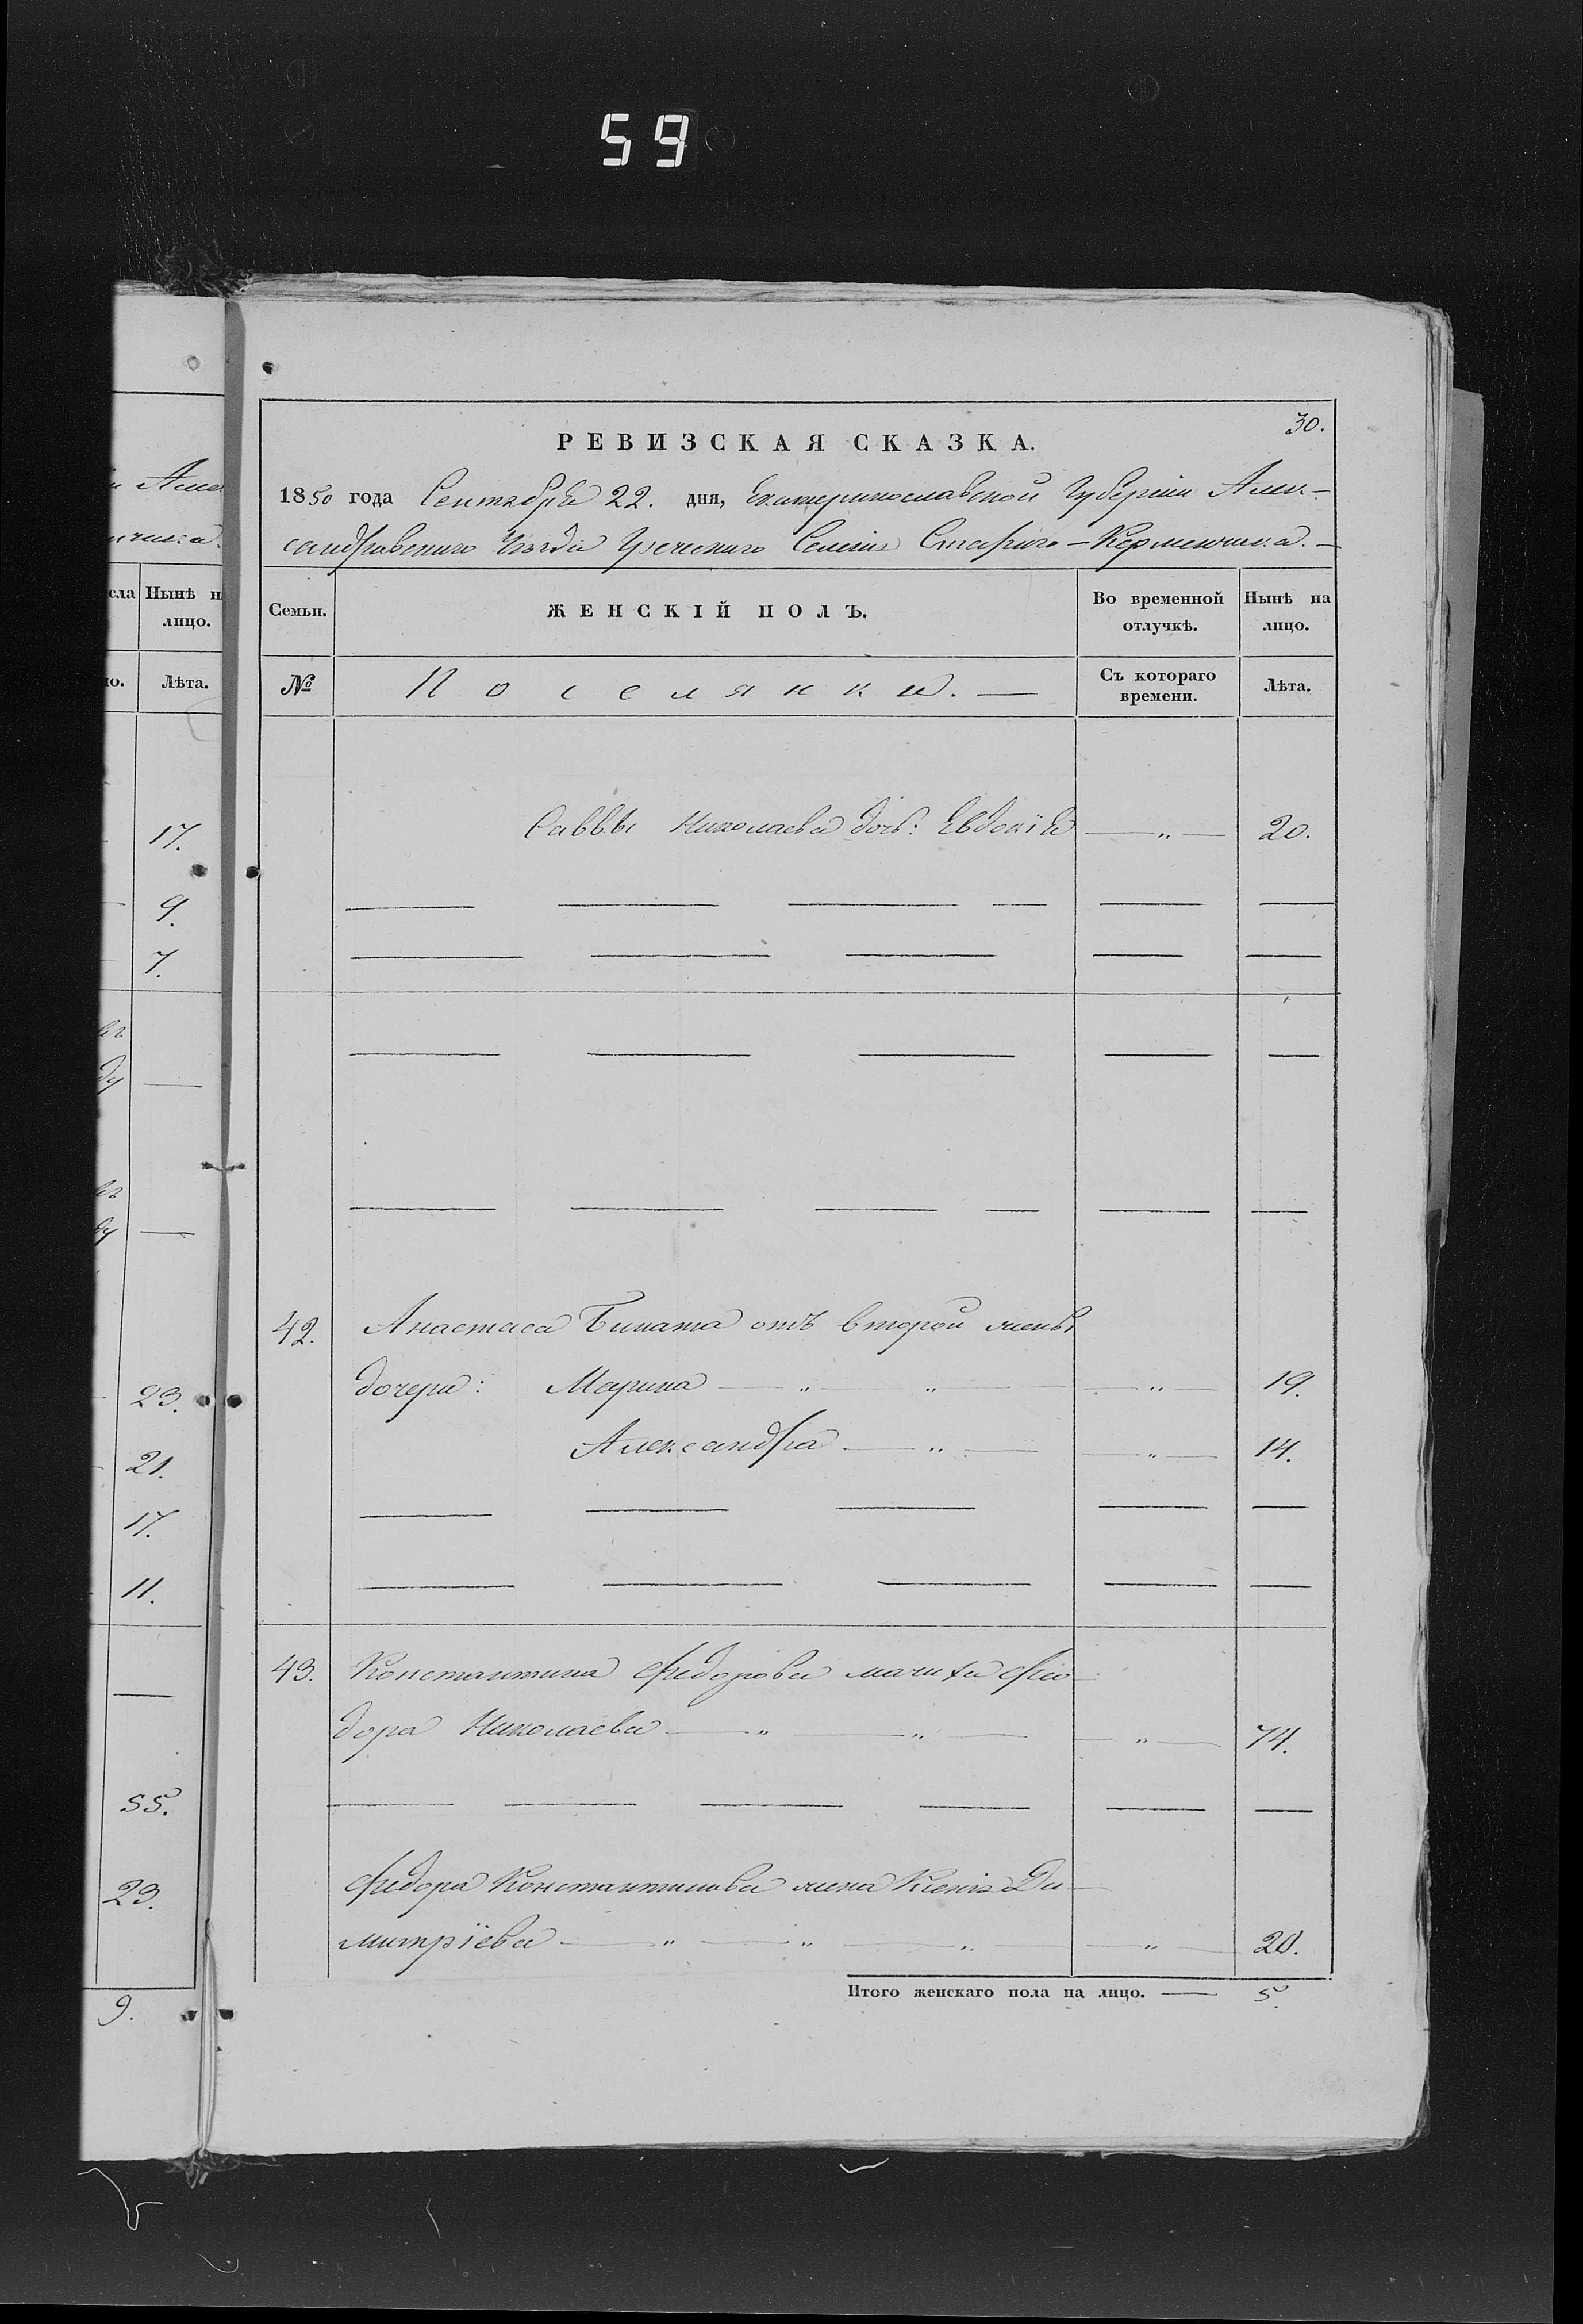 59
30.
РЕВИЗСКАЯ СКАЗКА.
1850 года Сентября 22. дня, Екатеринославской Губерніи Алек-
сандровскаго Уѣзда Греческаго Селенія Стараго-Керменчика.
сла
Нынѣ н
лицо.
Лѣта.
Семьи.
ЖЕНСКІЙ ПОЛЪ.
Во временной
отлучкѣ.
Нынѣ на
лицо.
№
Поселянки.
Съ котораго
времени.
Лѣта.
17.
9.
7.
23.
21.
17.
11.
55.
23.
9.
Саввы Николаева дочь: Евдокія — „ — 20.
42. Анастаса Бината отъ второй жены
дочери: Марина — „ — „ — — „ — 19.
Александра — „ — — „ — 14.
43. Константина Федорова мачиха Фео-
дора Николаева — „ — „ — — „ — 74.
Федора Константинова жена Ксенія Ди-
митріева — „ — „ — „ — — „ — 20.
Итого женскаго пола на лицо. — 5.